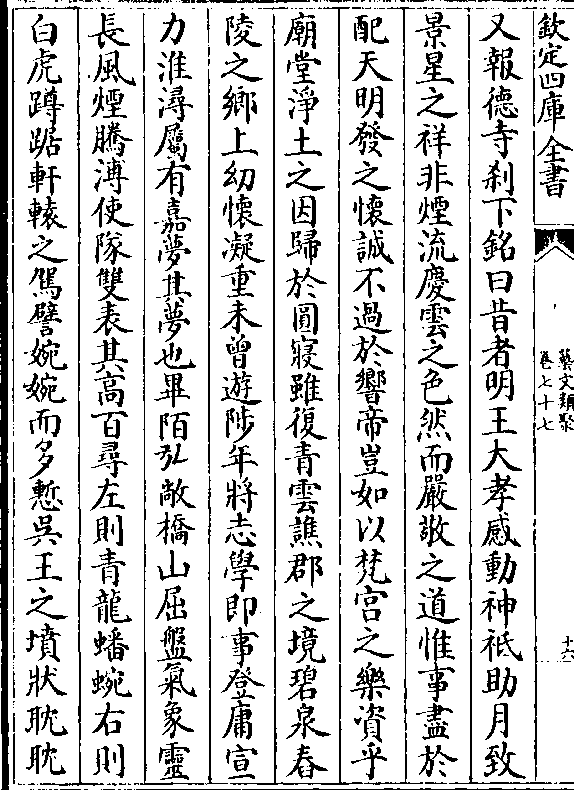 欽定四庫全書
藝文類聚
卷七十七
十六
又報德寺剎下銘曰昔者明王大孝感動神祇助月致
景星之祥非煙流慶雲之色然而嚴敬之道惟事盡於
配天明發之懷誠不過於響帝豈如以梵宫之樂資乎
廟堂淨土之因歸於圓寢雖復青雲譙郡之境碧泉舂
陵之鄉上幼懷凝重未曾遊陟年將志學即事登庸宣
力淮潯屬有嘉夢其夢也畢陌弘敞橋山屈盤氣象靈
長風煙騰溥使隊雙表其高百尋左則青龍蟠蜿右則
白虎蹲踞軒轅之駕譬婉婉而多慙吳王之墳狀耽耽